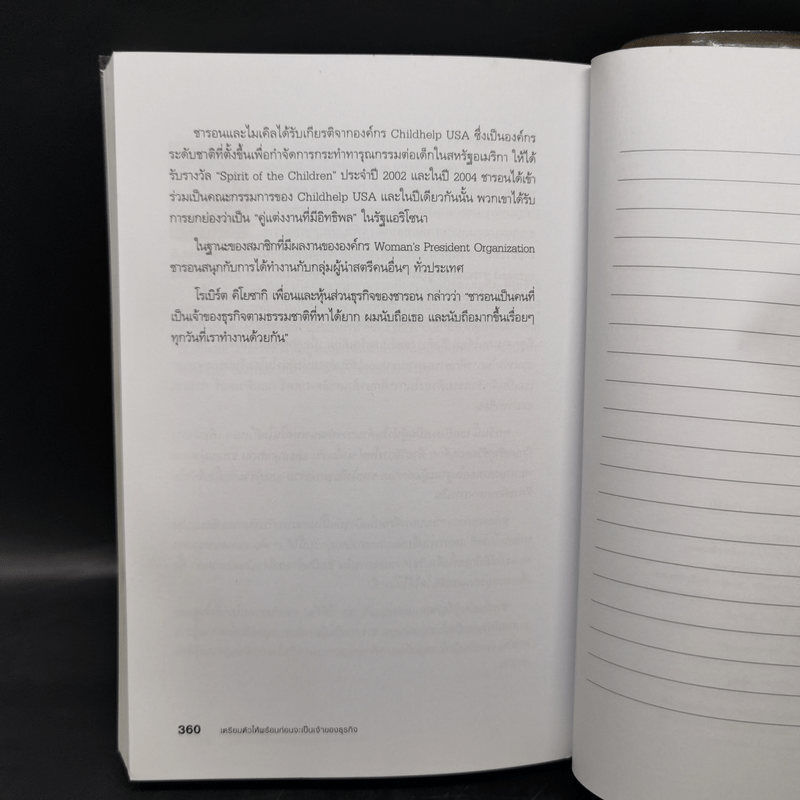 ชารอนและไมเคิลได้รับเกียรติจากองค์กร Childhelp USA ซึ่งเป็นองค์กร
ระดับชาติที่ตั้งขึ้นเพื่อกำจัดการกระทำทารุณกรรมต่อเด็กในสหรัฐอเมริกา ให้ได้
รับรางวัล "Spirit of the Children" ประจำปี 2002 และในปี 2004 ชารอนได้เข้า
ร่วมเป็นคณะกรรมการของ Childhelp USA และในปีเดียวกันนั้น พวกเขาได้รับ
การยกย่องว่าเป็น "คู่แต่งงานที่มีอิทธิพล" ในรัฐแอริโซนา
ในฐานะของสมาชิกที่มีผลงานขององค์กร Woman's President Organization
ชารอนสนุกกับการได้ทำงานกับกลุ่มผู้นำสตรีคนอื่นๆ ทั่วประเทศ
โรเบิร์ต คิโยซากิ เพื่อนและหุ้นส่วนธุรกิจของชารอน กล่าวว่า "ชารอนเป็นคนที่
เป็นเจ้าของธุรกิจตามธรรมชาติที่หาได้ยาก ผมนับถือเธอ และนับถือมากขึ้นเรื่อยๆ
ทุกวันที่เราทำงานด้วยกัน"
360 เตรียมตัวให้พร้อมก่อนจะเป็นเจ้าของธุรกิจ